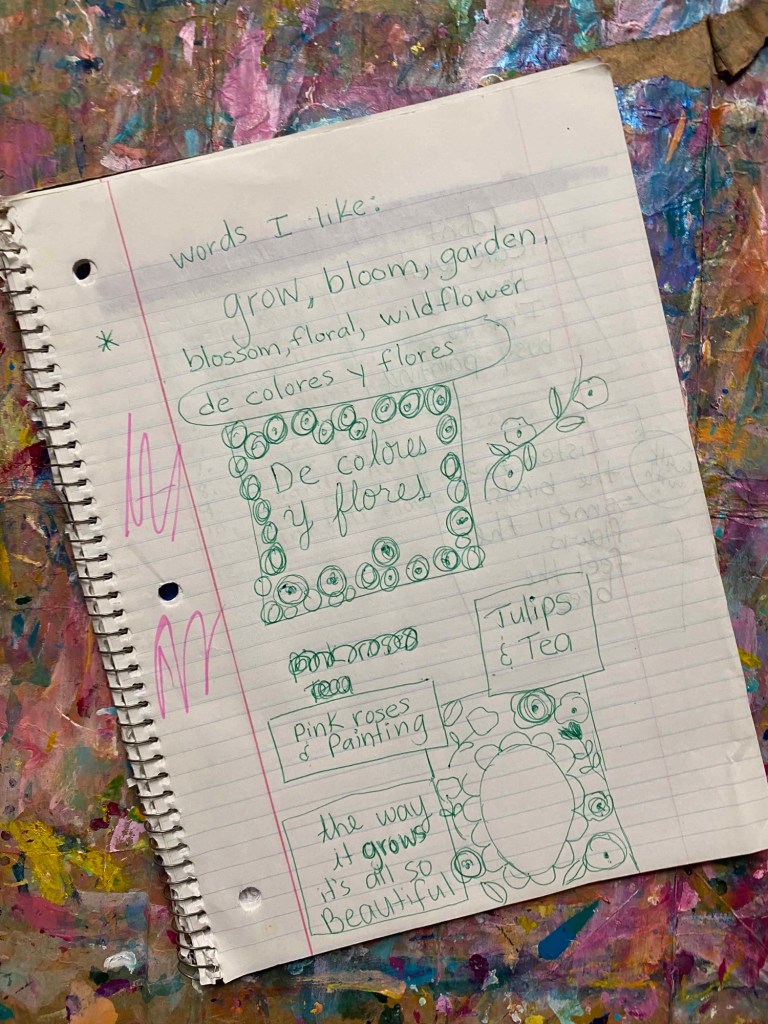 words I like:
grow, bloom, garden,
* blossom, floral, wildflower
de colores y flores
De colores
y flores
Tulips
& Tea
pink roses
Tea
Pink roses
& Painting
the way
it grows
it's all so
Beautiful